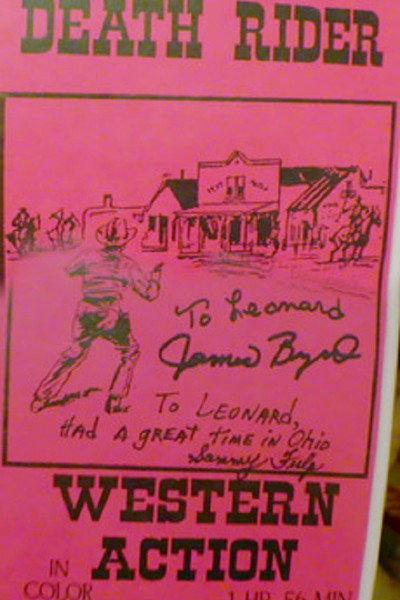 DEATH RIDER
To Leonard
James Byrd
To LEONARD,
HAD A GREAT TIME IN OHIO
Sammy
WESTERN
IN ACTION
COLOR 1 HR. 56 MIN